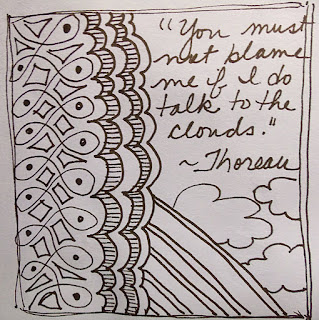 "You must
not blame
me if I do
talk to the
clouds."
~Thoreau